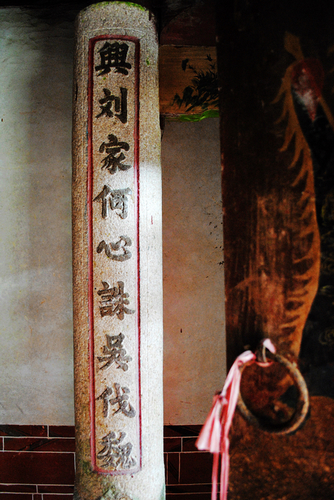 興刘家何心誅吳伐魏